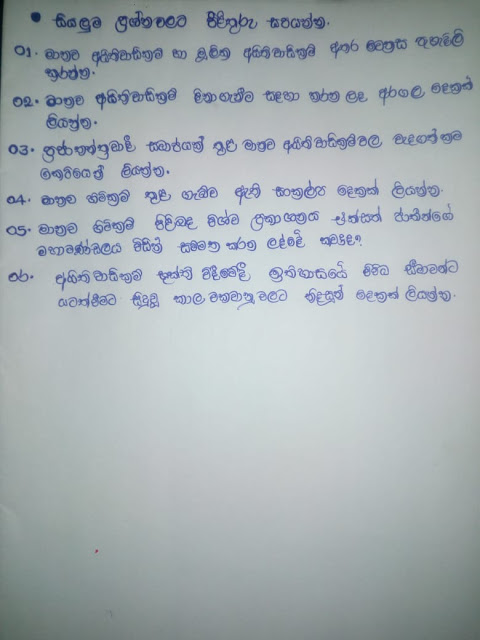 • සියලුම ප්‍රශ්නවලට පිළිතුරු සපයන්න.
01. මානව අයිතිවාසිකම් හා මූලික අයිතිවාසිකම් අතර වෙනස පැහැදිලි
කරන්න.
02. මානව අයිතිවාසිකම් දිනාගැනීම සඳහා කරන ලද අරගල දෙකක්
ලියන්න.
03. ප්‍රජාතන්ත්‍රවාදී සමාජයක් තුළ මානව අයිතිවාසිකම්වල වැදගත්කම
කෙටියෙන් ලියන්න.
04. මානව හිමිකම් තුළ ගැබ්ව ඇති සංකල්ප දෙකක් ලියන්න.
05. මානව හිමිකම් පිළිබඳ විශ්ව ප්‍රකාශනය එක්සත් ජාතීන්ගේ
මහාමණ්ඩලය විසින් සම්මත කරන ලද්දේ කවදාද?
06. අයිතිවාසිකම් භුක්ති විඳීමේදී, ඉතිහාසයේ විවිධ සීමාවන්ට
යටත්වීමට සිදුවූ කාල වකවානුවලට නිදසුන් දෙකක් ලියන්න.